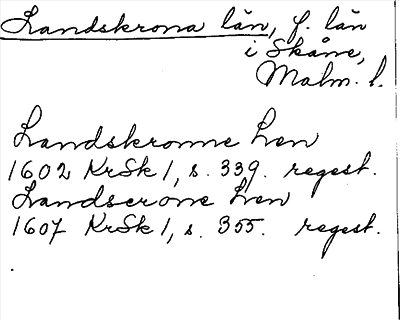 Landskrona län, f. län
i Skåne,
Malm. l.
Landskronne Len
1602 KrSk 1, s. 339. regest.
Landscrone Len
1607 KrSk 1, s. 355. regest.